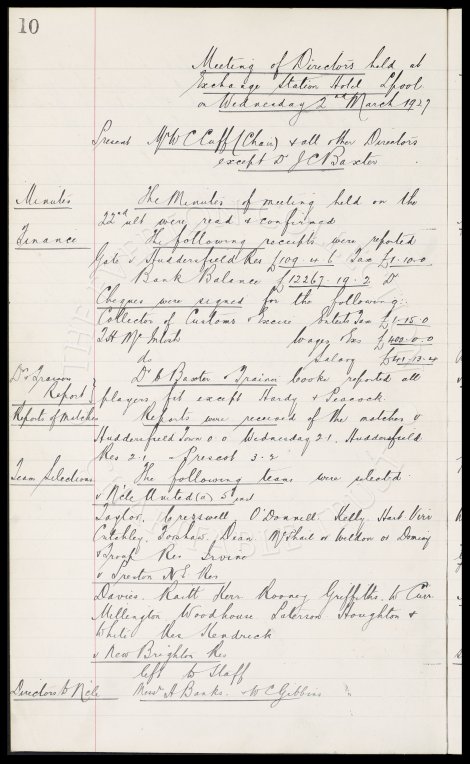 10
Meeting of Directors held at
Exchange Station Hotel L'pool
on Wednesday 2nd March 1927
Present Mr W C Cuff (Chair) & all other Directors
except Dr J C Baxter
Minutes The Minutes of meeting held on the
22nd ult were read & confirmed
Finance The following receipts were reported
Gate v Huddersfield Res £109. 4. 6 Tax £1. 10. 0
Bank Balance £12267. 19. 2 Dr
Cheques were signed for the following:
Collector of Customs & Excise Entertn Tax £1. 15. 0
T H McIntosh Wages, Exs £400. 0. 0
do Salary £41. 13. 4
Dr & Trainers Report Dr Baxter & Trainer Cooke reported all
players fit except Hardy & Peacock
Reports of Matches Reports were received of the matches v
Huddersfield Town 0 0 Wednesday 2 1, Huddersfield
Res 2 1 Prescot 3. 2
Team Selections The following teams were selected
v N'cle United (a) 5th inst
Taylor, Cresswell O'Donnell Kelly Hart Virr
Critchley, Dean McPhail or Weldon or Dominy
& Troup Res Irvine
v Preston N.E. Res
Davies. Raitt Kerr Rooney Griffiths, W Curr
Millington Woodhouse Houghton &
White Res Kendrick
v New Brighton Res
left to Staff
Directors to N'cle Messrs A Banks. & W C Gibbins